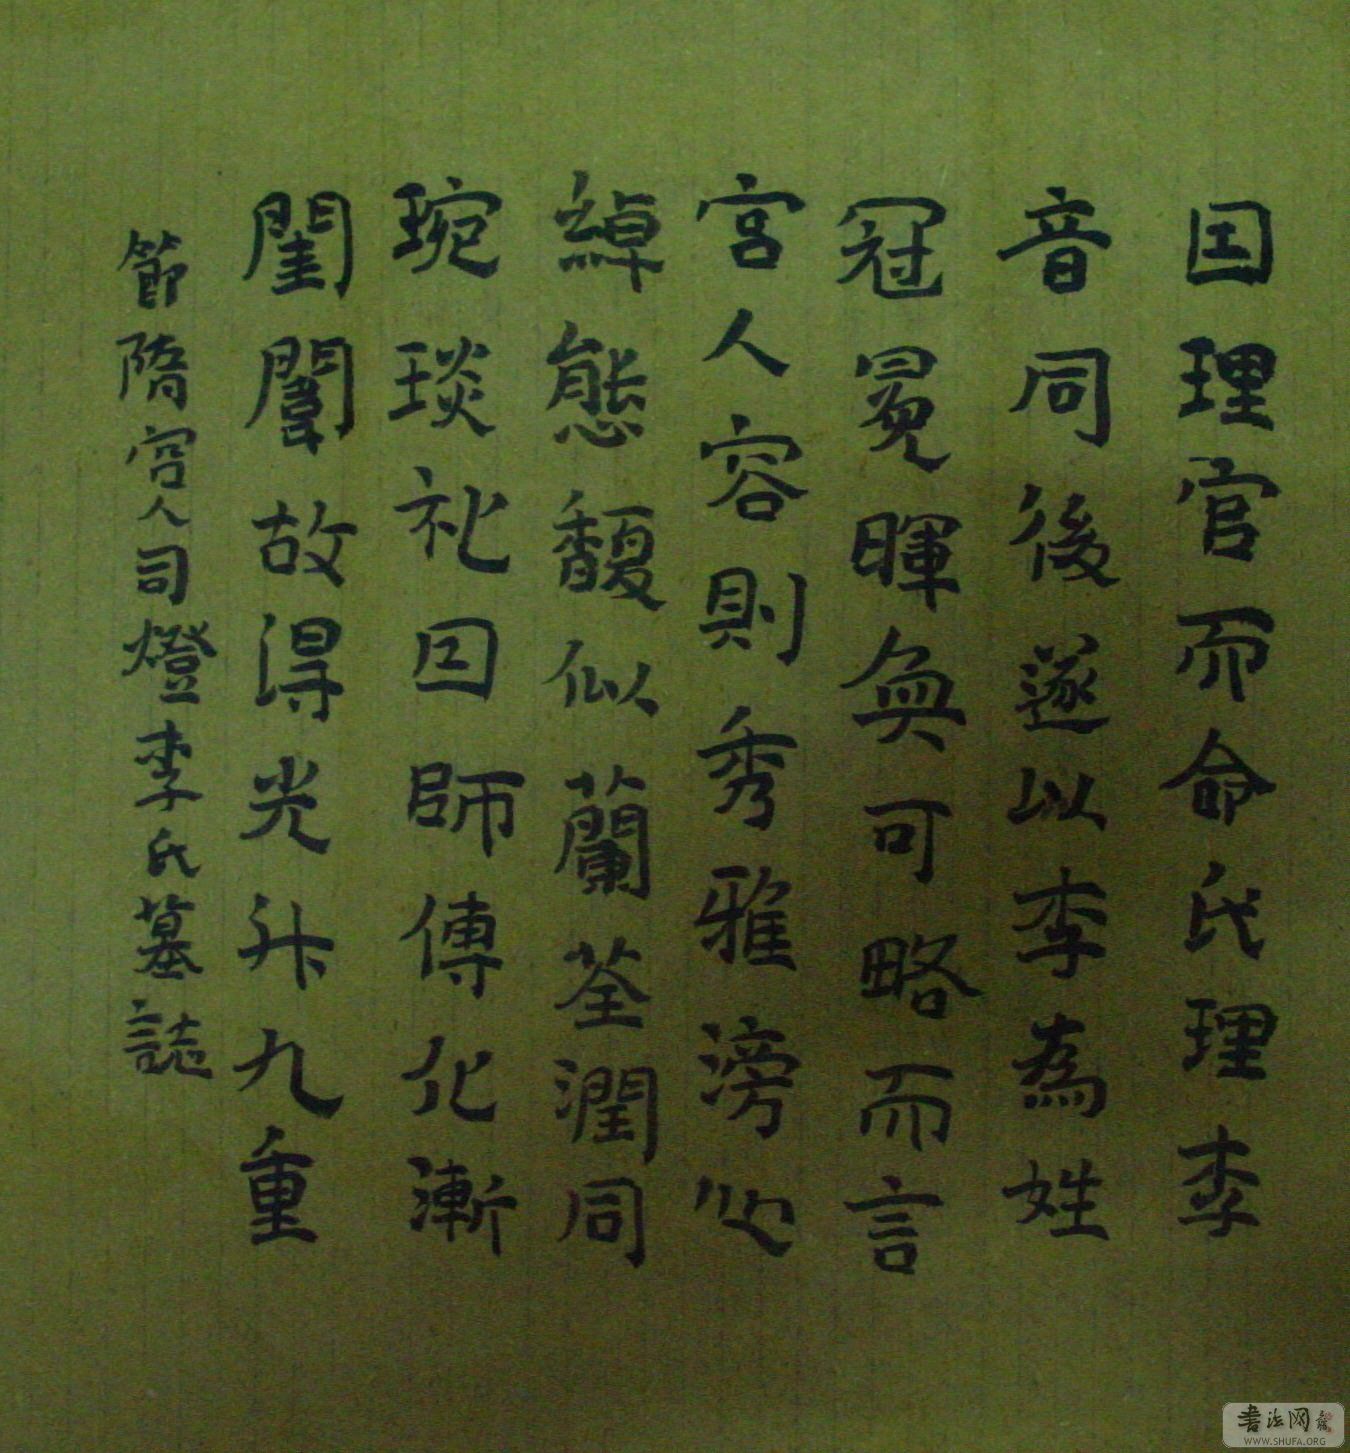 国理官而命氏理李
音同後遂以李為姓
冠冕暉奐可略而言
宮人容則秀雅滂心
綽態馥似蘭荃潤同
琬琰礼因師傅化漸
閨闈故得光升九重
節隋宮人司燈李氏墓誌
書法网
WWW.SHUFA.ORG